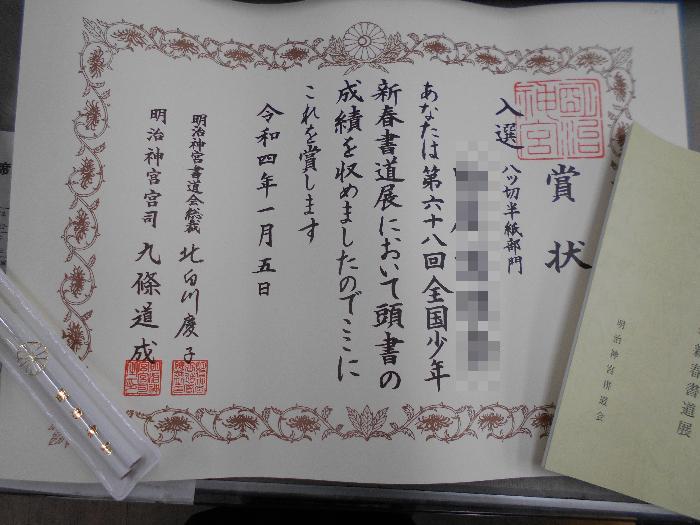 賞状
明治神宮
入選 八ッ切半紙部門
あなたは第六十八回全国少年
新春書道展において頭書の
成績を収めましたのでここに
これを賞します
令和四年一月五日
明治神宮書道会総裁 北白川慶子
明治神宮宮司 九條道成
新春書道展
明治神宮書道会
席